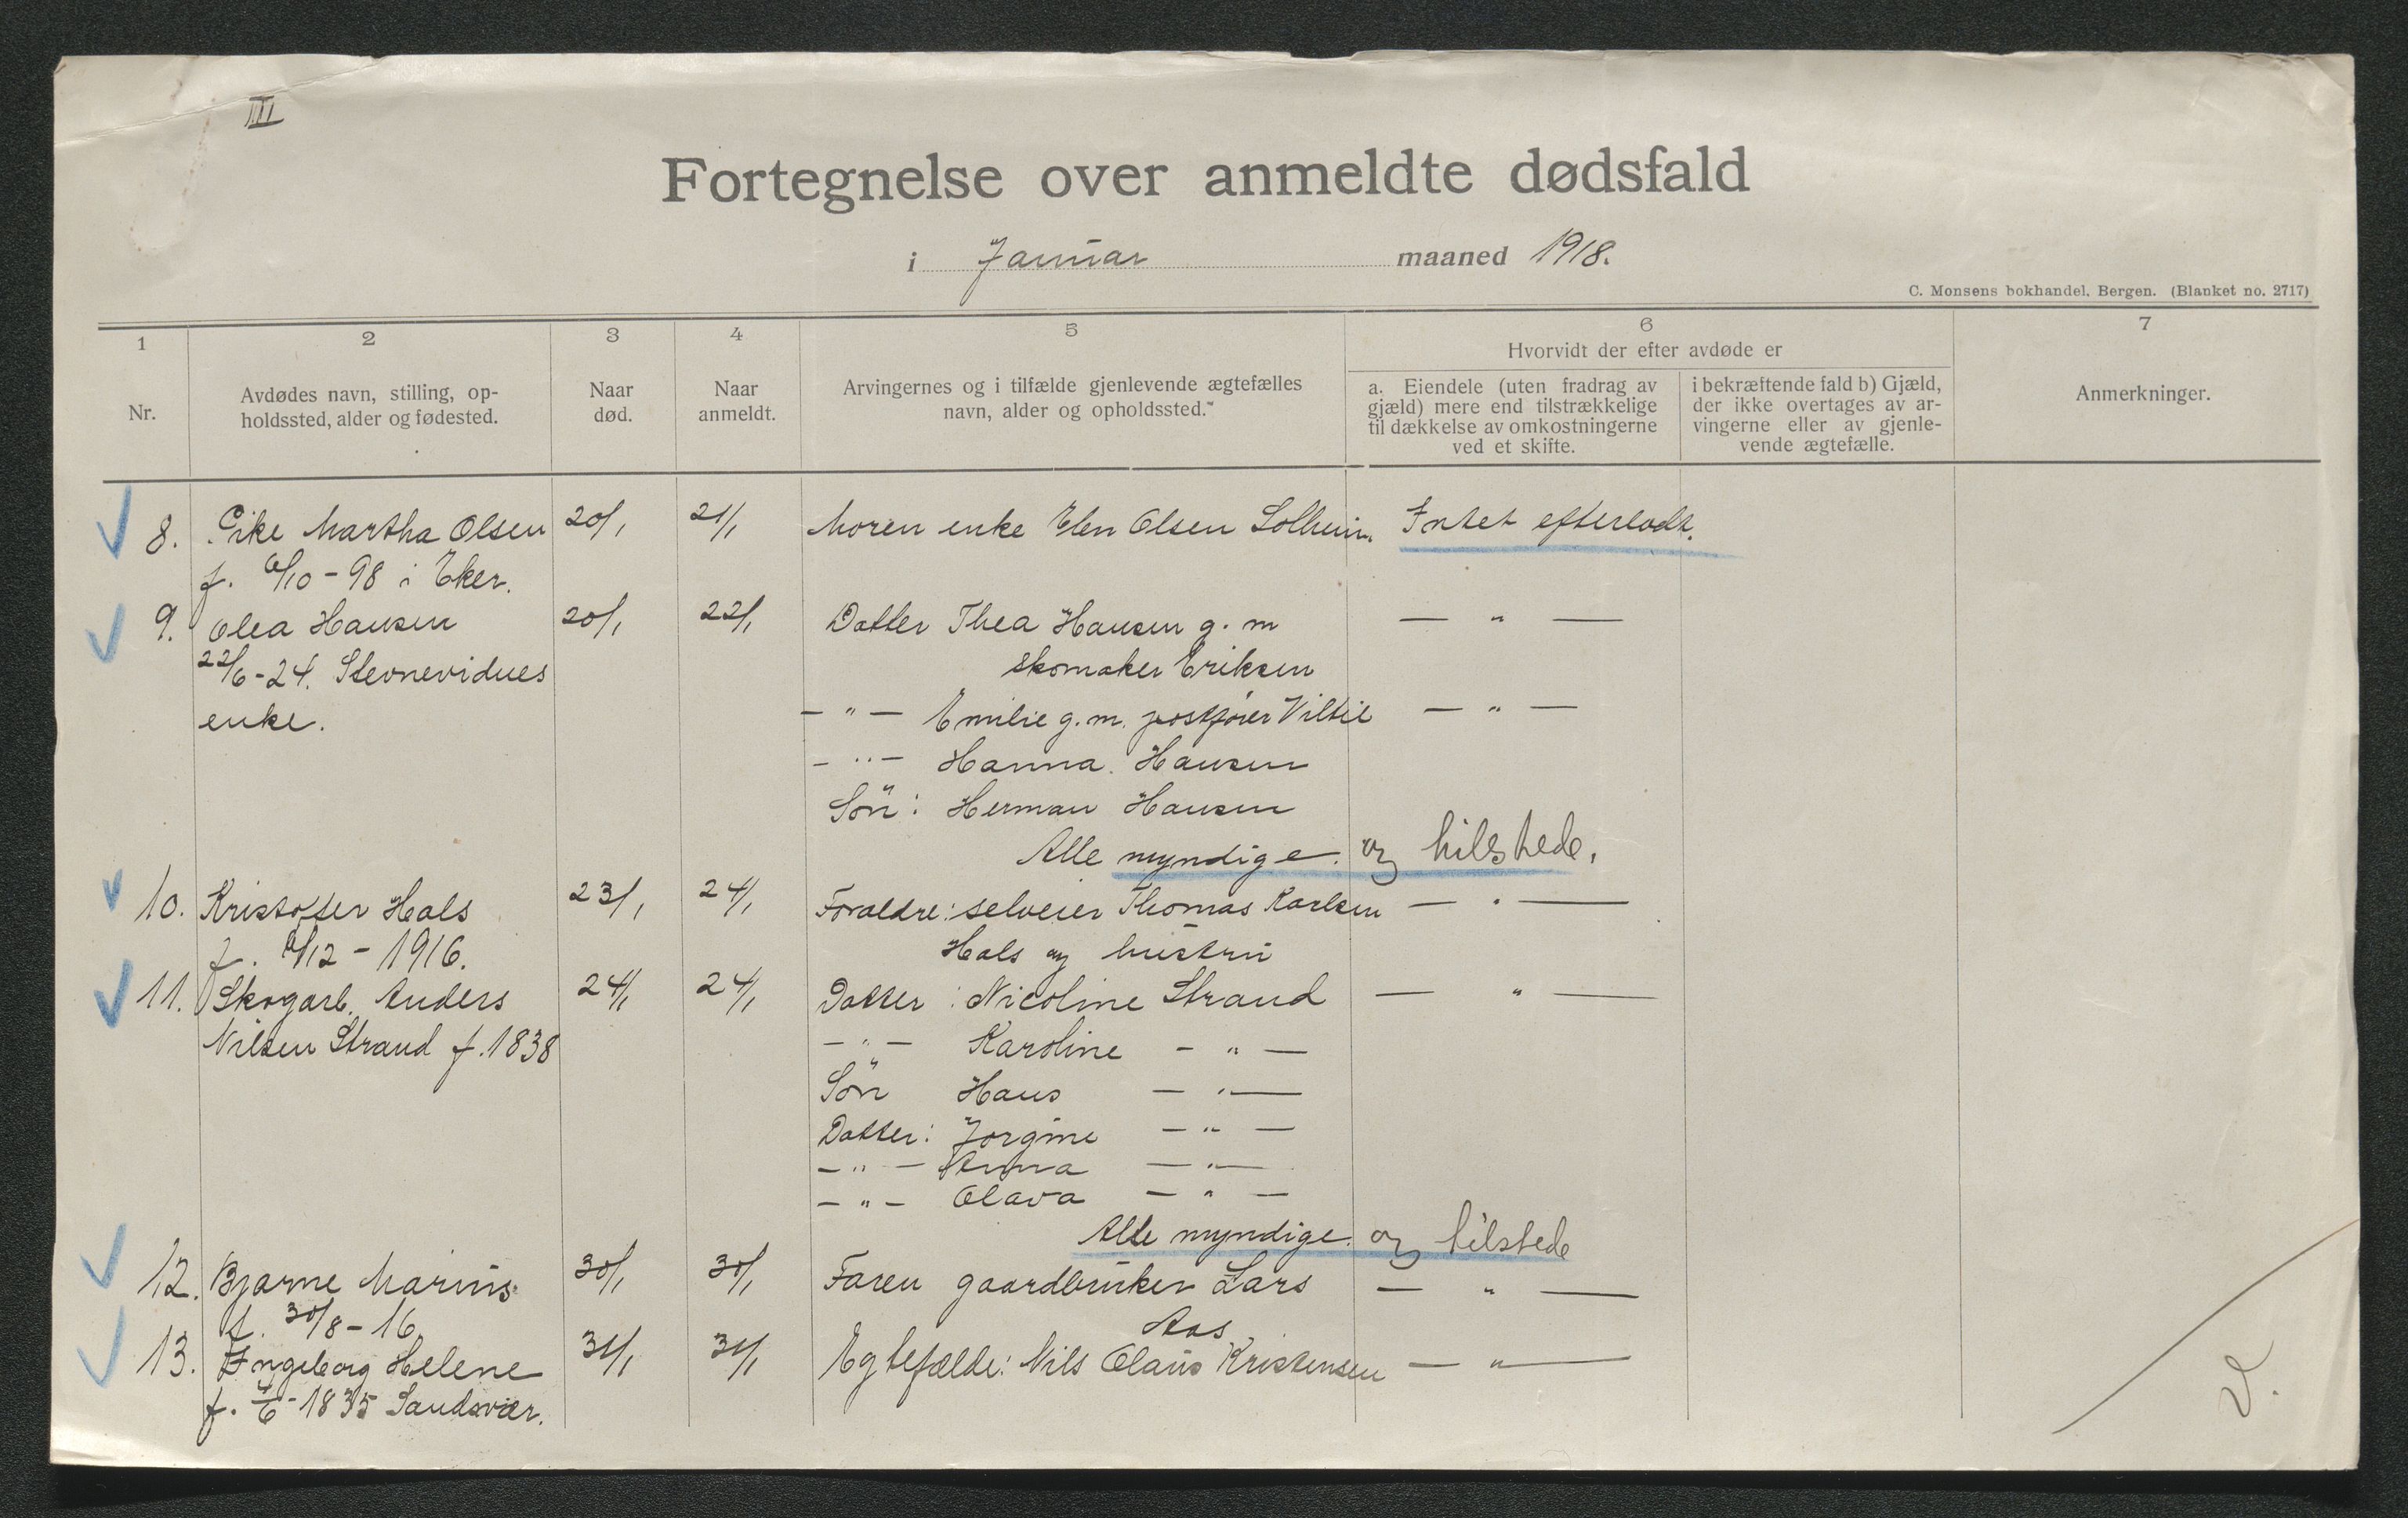 III
Fortegnelse over anmeldte dødsfald
i Januar maaned 1918.
C. Monsens bokhandel, Bergen. (Blanket no. 2717)
1
2
3
4
5
6
7
Nr.
Avdødes navn, stilling, op-
holdssted, alder og fødested.
Naar
død.
Naar
anmeldt.
Arvingernes og i tilfælde gjenlevende ægtefælles
navn, alder og opholdssted.
Hvorvidt der efter avdøde er
a. Eiendele (uten fradrag av
gjæld) mere end tilstrækkelige
til dækkelse av omkostningerne
ved et skifte.
i bekræftende fald b) Gjæld,
der ikke overtages av ar-
vingerne eller av gjenle-
vende ægtefælle.
Anmerkninger.
8. Pike Martha Olsen 20/1 21/1 Moren enke Elen Olsen Solheim. Intet efterladt.
f. 6/10-98 i Eker.
9. Olea Hansen 20/1 22/1 Datter Thea Hansen g. m — " —
22/6-24. Stevnevidnes skomaker Eriksen
enke. — " — Emilie g. m. postfører — " —
— " — Hanna Hansen
Søn: Herman Hansen
Alle myndige og tilstede.
10. Kristoffer Hals 23/1 24/1 Foraldre: selveier Thomas Karlsen — " —
f. /12-1916. Hals og hustru
11. Skogarb. Anders 24/1 24/1 Datter: Nicoline Strand — " —
Nilsen Strand f. 1838 — " — Karoline — " —
Søn Hans — " —
Datter: Jorgine — " —
— " — Anna — " —
— " — Olava — " —
Alle myndige og tilstede
12. Bjarne Marius 30/1 30/1 Faren gaardbruker Lars — " —
f. 30/8-16 Aas
13. Ingeborg Helene 31/1 31/1 Egtefælde: Nils Olaus Kristensen — " —
f. 4/6-1835 Sandsvær.